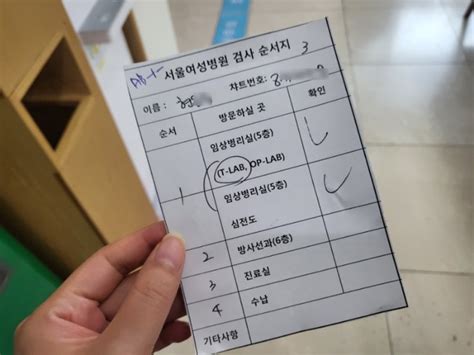 서울여성병원 검사 순서지 3
이름 : 차트번호:
순서 방문하실 곳 확인
1 임상병리실(5층)
(T-LAB, OP-LAB)
임상병리실(5층)
심전도
2 방사선과(6층)
3 진료실
4 수납
기타사항